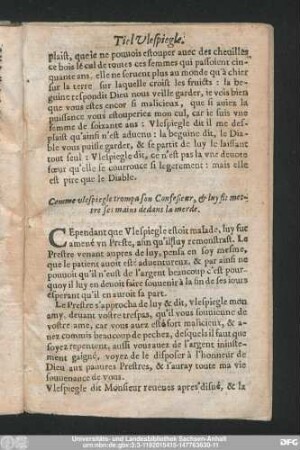 Tiel Vlespiegle.
plaist, que ie ne pouuois estouper auec des cheuilles
ce bois le cul de toutes ces femmes qui passoient cin-
quante ans, elle ne seruent plus au monde qu'à chier
sur la terre sur laquelle croist les fruicts: la be-
guine respondit Dieu nous veille garder, ie vois bien
que vous estes encor si malicieux, que si auiez la
puissance vous estouperiez mon cul, car ie suis vne
femme de soixante ans: Vlespiegle dit il me des-
plaist qu'ainsi n'est aduenu: la beguine dit, le Dia-
ble vous puisse garder, & se partit de luy le laissant
tout seul: Vlespiegle dit, ce n'est pas la vne deuote
sœur qu'elle se courrouce si legerement: mais elle
est pire que le Diable.
Comme vlespiegle trompa son Confesseur, & luy fit met-
tre ses mains dedans la merde.
CEpendant que Vlespiegle estoit malade, luy fut
amené vn Prestre, afin qu'il luy remonstrast. Le
Prestre venant aupres de luy, pensa en soy mesme,
que le patient auoit esté aduentureux, & par ainsi ne
pouuoit qu'il n'eust de l'argent beaucoup c'est pour-
quoy il luy en denoit faire souuenir à la fin de ses iours
esperant qu'il en auroit sa part.
Le Prestre s'approcha de luy & dit, vlespiegle mon
amy, deuant vostre trespas, qu'il vous souuienne de
vostre ame, car vous auez esté fort malicieux, & a-
uez commis beaucoup de pechez, desquels il faut que
soyez repentent, aussi vous auez de l'argent iniuste-
ment gaigné, voyez de le disposer à l'honneur de
Dieu aux pauures Prestres, & i'auray toute ma vie
souuenance de vous.
Vlespiegle dit Monsieur reuenes apres disné, & la
Universitäts- und Landesbibliothek Sachsen-Anhalt
urn:nbn:de:gbv:3:3-1192015415-147763630-11
DFG